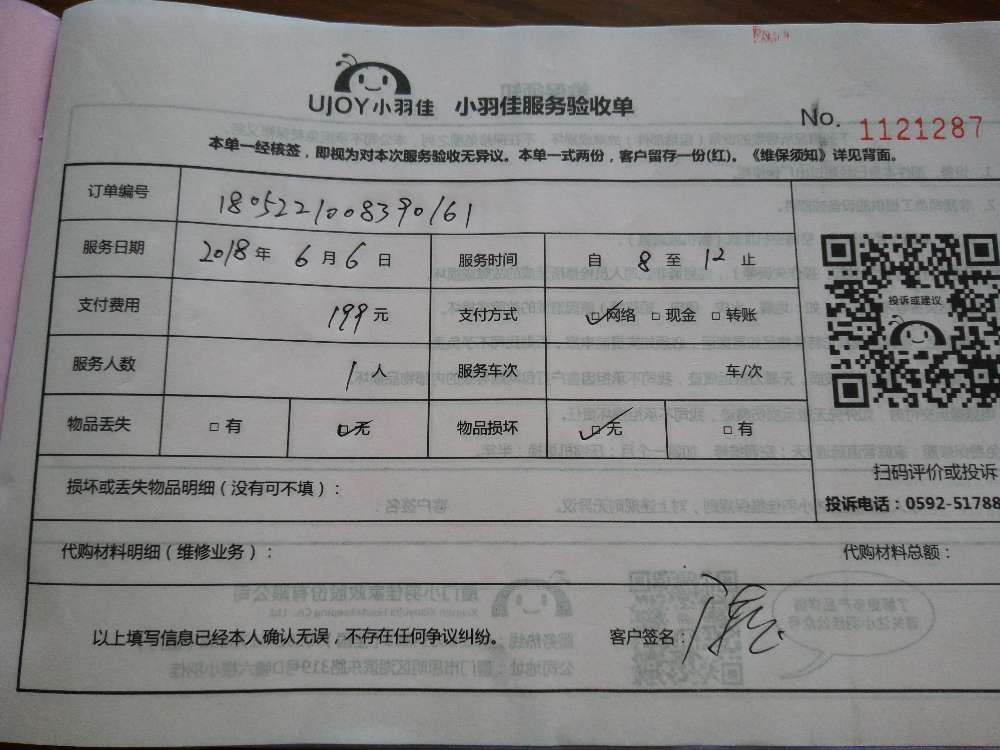 UJOY小羽佳 小羽佳服务验收单
No. 1121287
本单一经核签，即视为对本次服务验收无异议。本单一式两份，客户留存一份(红)。《维保须知》详见背面。
订单编号 180522100839016​1
服务日期 2018年 6月6日 服务时间 自 8 至 12 止
支付费用 199元 支付方式 ☑网络 □现金 □转账
服务人数 1人 服务车次 车/次
物品丢失 □有 ☑无 物品损坏 ☑无 □有
投诉或建议
扫码评价或投诉
投诉电话：0592-51788
损坏或丢失物品明细（没有可不填）：
代购材料明细（维修业务）： 代购材料总额：
以上填写信息已经本人确认无误，不存在任何争议纠纷。 客户签名：